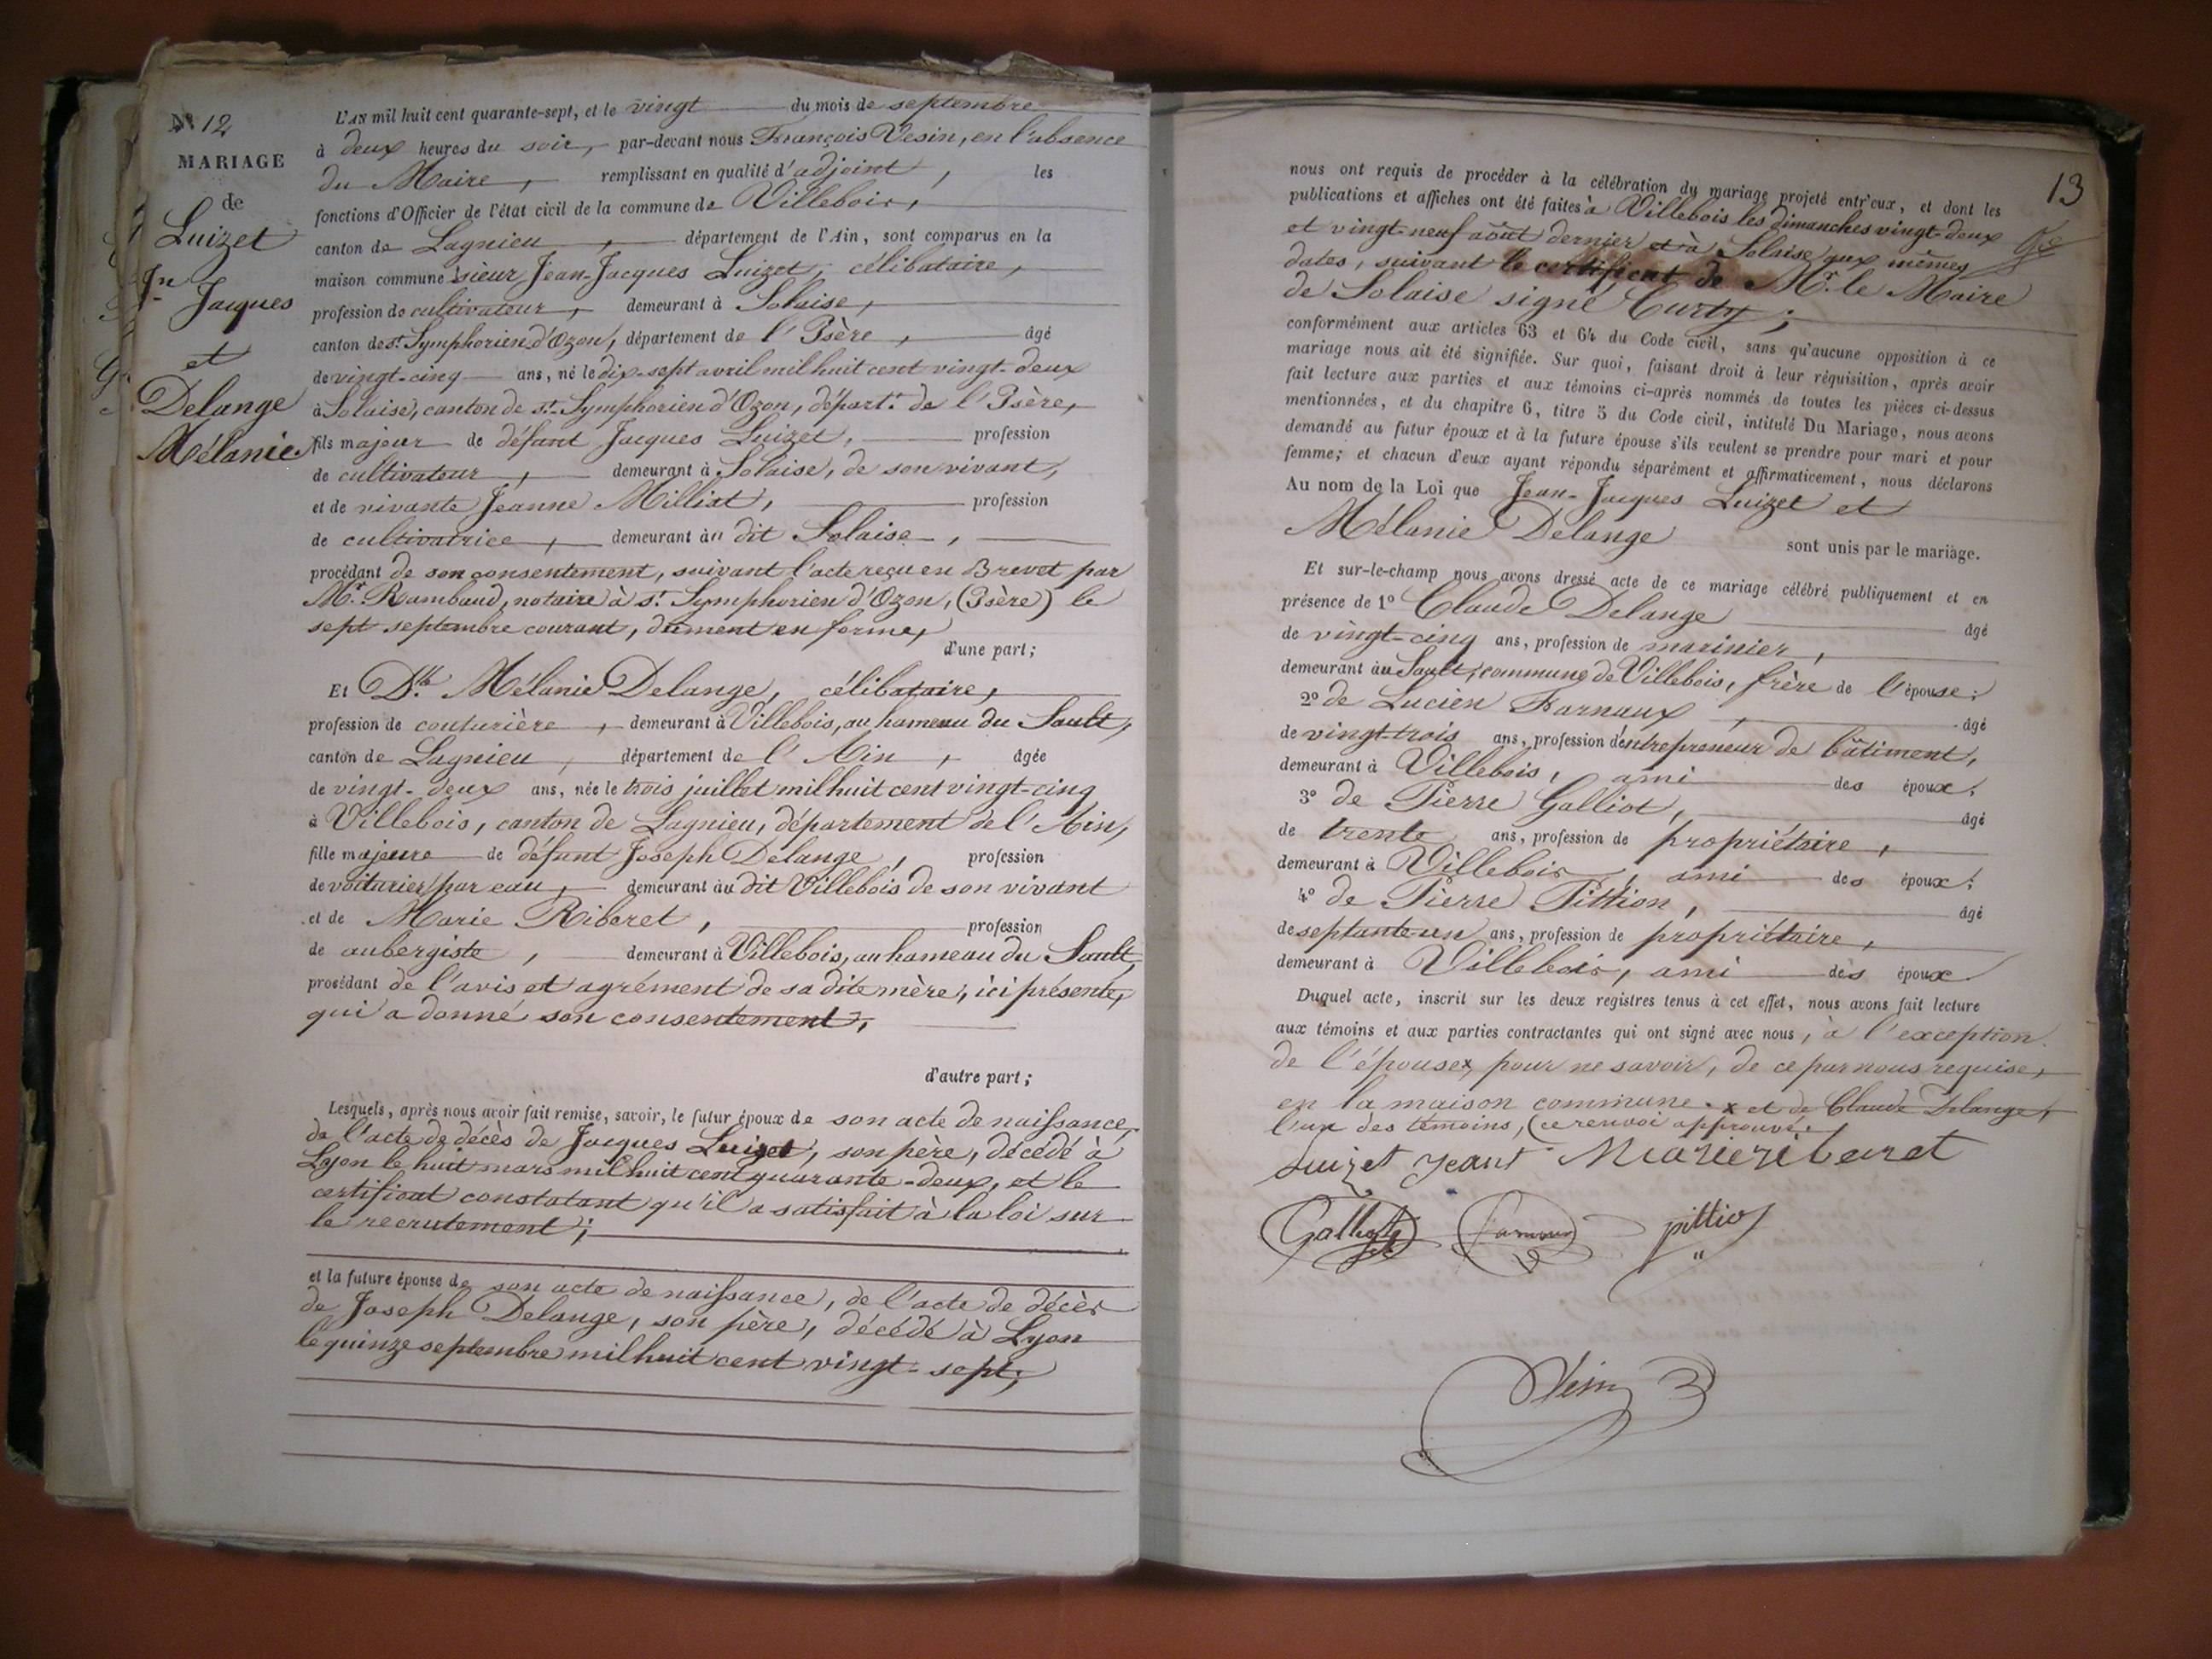 N° 12
MARIAGE
de
Luizet
Jn Jacques
et
Delange
Mélanie
L'AN mil huit cent quarante-sept, et le vingt du mois de septembre
à deux heures du soir, par-devant nous François Vesin, en l'absence
du Maire, remplissant en qualité d'adjoint, les
fonctions d'Officier de l'état civil de la commune de Villebois,
canton de Lagnieu, département de l'Ain, sont comparus en la
maison commune sieur Jean-Jacques Luizet, célibataire,
profession de cultivateur, demeurant à Solaise,
canton de St. Symphorien d'Ozon, département de l'Isère, âgé
de vingt-cinq ans, né le dix-sept avril mil huit cent vingt-deux
à Solaise, canton de St. Symphorien d'Ozon, départt. de l'Isère,
fils majeur de défunt Jacques Luizet, profession
de cultivateur, demeurant à Solaise, de son vivant,
et de vivante Jeanne Milliat, profession
de cultivatrice, demeurant àu dit Solaise,
procédant de son consentement, suivant l'acte reçu en Brevet par
Mr. Rambaud, notaire à St. Symphorien d'Ozon, (Isère) le
sept septembre courant, dument en forme,
d'une part;
Et Dlle Mélanie Delange, célibataire,
profession de couturière, demeurant à Villebois, au hameau du Sault,
canton de Lagnieu, département de l'Ain, âgée
de vingt-deux ans, née le trois juillet mil huit cent vingt-cinq
à Villebois, canton de Lagnieu, département de l'Ain,
fille majeure de défunt Joseph Delange, profession
de voiturier par eau, demeurant àu dit Villebois de son vivant
et de Marie Riberet, profession
de aubergiste, demeurant à Villebois, au hameau du Sault,
procédant de l'avis et agrément de sa dite mère, ici présente,
qui a donné son consentement,
d'autre part;
Lesquels, après nous avoir fait remise, savoir, le futur époux de son acte de naissance,
de l'acte de décès de Jacques Luizet, son père, décédé à
Lyon le huit mars mil huit cent quarante-deux, et le
certificat constatant qu'il a satisfait à la loi sur
le recrutement;
et la future épouse de son acte de naissance, de l'acte de décès
de Joseph Delange, son père, décédé à Lyon
le quinze septembre mil huit cent vingt-sept;
13
nous ont requis de procéder à la célébration du mariage projeté entr'eux, et dont les
publications et affiches ont été faites à Villebois les dimanches vingt-deux
et vingt-neuf août dernier et à Solaise aux mêmes
dates, suivant le certificat de Mr. le Maire
de Solaise signé Curty;
conformément aux articles 63 et 64 du Code civil, sans qu'aucune opposition à ce
mariage nous ait été signifiée. Sur quoi, faisant droit à leur réquisition, après avoir
fait lecture aux parties et aux témoins ci-après nommés de toutes les pièces ci-dessus
mentionnées, et du chapitre 6, titre 5 du Code civil, intitulé Du Mariage, nous avons
demandé au futur époux et à la future épouse s'ils veulent se prendre pour mari et pour
femme; et chacun d'eux ayant répondu séparément et affirmativement, nous déclarons
Au nom de la Loi que Jean-Jacques Luizet et
Mélanie Delange sont unis par le mariage.
Et sur-le-champ nous avons dressé acte de ce mariage célébré publiquement et en
présence de 1° Claude Delange âgé
de vingt-cinq ans, profession de marinier,
demeurant àu Sault, commune de Villebois, frère de l'épouse;
2° de Lucien Farnaux, âgé
de vingt-trois ans, profession d'entrepreneur de bâtiment,
demeurant à Villebois, ami des époux;
3° de Pierre Galliot, âgé
de trente ans, profession de propriétaire,
demeurant à Villebois, ami des époux;
4° de Pierre Pittion, âgé
de septante-un ans, profession de propriétaire,
demeurant à Villebois, ami des époux
Duquel acte, inscrit sur les deux registres tenus à cet effet, nous avons fait lecture
aux témoins et aux parties contractantes qui ont signé avec nous, à l'exception
de l'épouse x, pour ne savoir, de ce par nous requise,
en la maison commune. x et de Claude Delange,
l'un des témoins, (ce renvoi approuvé.
Luizet Jean Marie riberet
Galliot pittion
Vesin